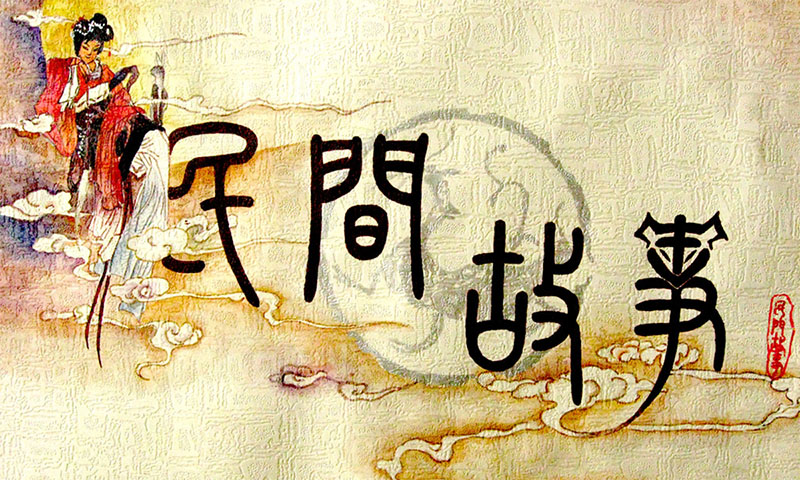 民間故事
民間故事